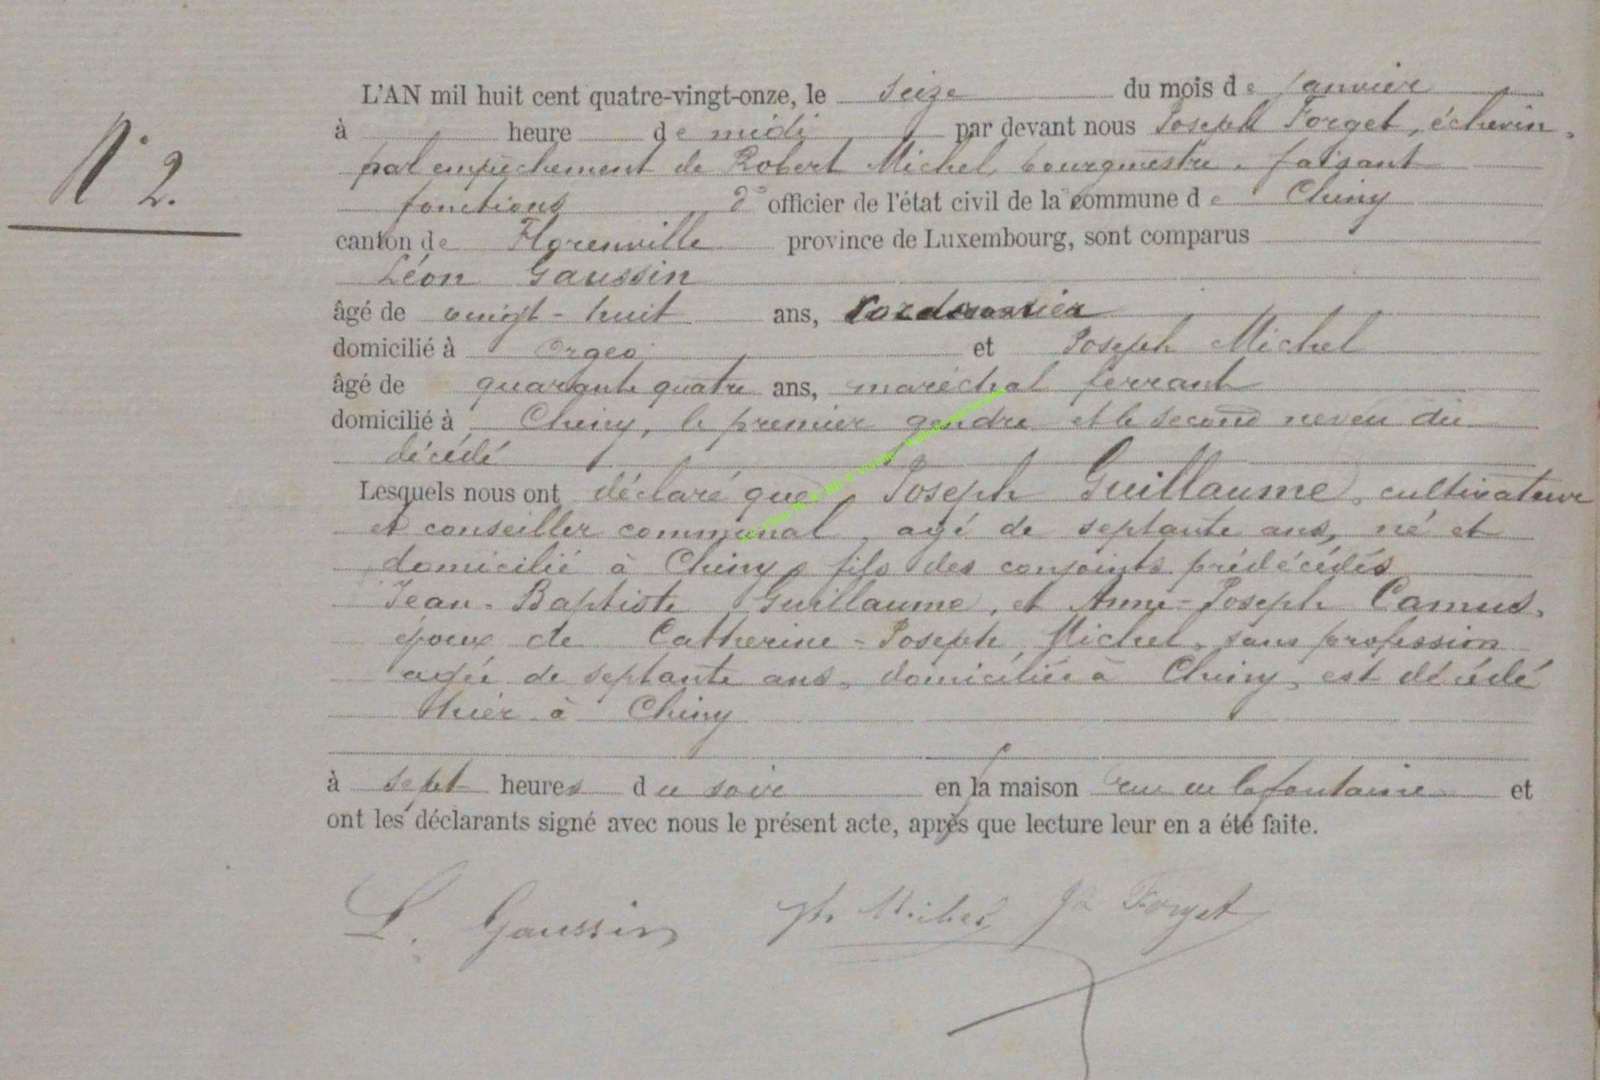 N° 2.
L'AN mil huit cent quatre-vingt-onze, le seize du mois de janvier
à heure de midi par devant nous Joseph Forget, échevin,
par empêchement de Robert Michel, bourgmestre, faisant
fonctions d' officier de l'état civil de la commune de Chiny
canton de Florenville province de Luxembourg, sont comparus
Léon Gaussin
âgé de vingt-huit ans, cordonnier
domicilié à Orgeo et Joseph Michel
âgé de quarante quatre ans, maréchal ferrant
domicilié à Chiny, le premier gendre et le second neveu du
décédé
Lesquels nous ont déclaré que Joseph Guillaume, cultivateur
et conseiller communal, agé de septante ans, né et
domicilié à Chiny, fils des conjoints prédécédés
Jean-Baptiste Guillaume, et Anne-Joseph Camus,
époux de Catherine-Joseph Michel, sans profession
agée de septante ans, domiciliée à Chiny, est décédé
hier à Chiny
à sept heures du soir en sa maison rue en lafontaine et
ont les déclarants signé avec nous le présent acte, après que lecture leur en a été faite.
L. Gaussin Jh. Michel Jh Forget